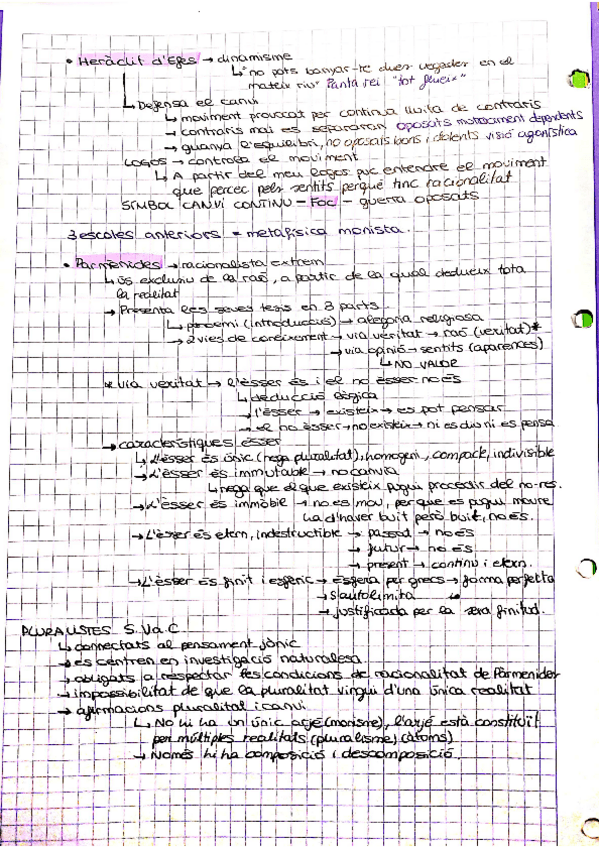 • Heràclit d'Efes → dinamisme
↳ "no pots banyar-te dues vegades en el
mateix riu" Panta rei "tot flueix"
↳ Defensa el canvi
↳ moviment provocat per contínua lluita de contraris
→ contraris mai es separaran oposats mutuament dependents
→ guanya l'equilibri, no oposats bons i dolents visió agonística
LOGOS → controla el moviment
↳ A partir del meu logos puc entendre el moviment
que percec pels sentits perquè tinc racionalitat
SÍMBOL CANVI CONTINU – Foc – guerra oposats
3 escoles anteriors = metafísica monista.
• Parmènides → racionalista extrem
↳ ús exclusiu de la raó, a partir de la qual dedueix tota
la realitat
→ Presenta les seves tesis en 3 parts
↳ proemi (introducció) → alegoria religiosa
→ 2 vies de coneixement → via veritat → raó (veritat)*
→ via opinió → sentits (aparences)
↳ NO VALOR
* via veritat → l'ésser és i el no ésser no és
↳ deducció lògica
→ l'ésser → existeix → es pot pensar
→ el no ésser → no existeix → ni es diu ni es pensa
→ característiques ésser
↳ L'ésser és únic (nega pluralitat), homogeni, compacte, indivisible
→ L'ésser és immutable → no canvia
↳ nega que el que existeix pugui procedir del no-res.
→ L'ésser és immòbil → no es mou, per que es pugui moure
ha d'haver buit però buit, no és.
→ L'ésser és etern, indestructible → passat → no és
→ futur → no és
→ present → continu i etern.
→ L'ésser és finit i esfèric → esfera per grecs → forma perfecta
→ s'autolimita
→ justificada per la seva finitud.
PLURALISTES S. V a C.
↳ connectats al pensament jònic
→ es centren en investigació naturalesa
→ obligats a respectar les condicions de racionalitat de Parmènides
→ impossibilitat de que la pluralitat vingui d'una única realitat
→ afirmacions pluralitat i canvi
↳ No hi ha un únic arjé (monisme), l'arjé està constituït
per múltiples realitats (pluralisme) (àtoms)
→ Només hi ha composició i descomposició.